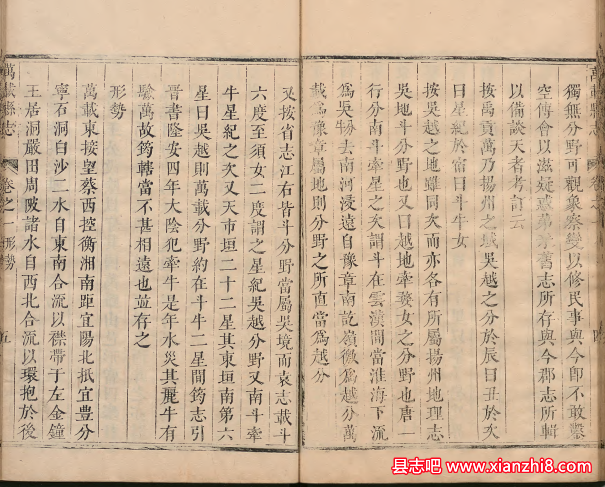 獨無分野可觀象察變以修民事與今即不敢繫
空傳會以滋疑惑第舊志所存與今郡志所輯
以備談天者考訂云
按禹貢萬乃揚州之域吳越之分於辰曰丑於次
曰星紀於宿曰斗牛女
按吳越之地雖同次而亦各有所屬揚州地理志
吳地斗分野也越地牽牛婺女之分野也唐一
行分南斗牽星之次謂斗在雲漢間當淮海下流
為吳牛去南河浸遠自豫章南乾嶺徼為越分萬
載為豫章屬地則分野之所直當為越分
又按省志江右皆斗分野當屬吳境而袁志載斗
六度至須女二度謂之星紀吳越分野又南斗牽
牛星紀之次又天市垣二十二星其東垣南第六
星曰吳越則萬載分野約在斗牛二星間筠志引
晉書隆安四年太陰犯牽牛是年水災其麗牛有
驗萬故筠轄當不甚相遠也並存之
形勢
萬載東接望蔡西控衡湘南距宜陽北抵宜豐分
寧石洞白沙二水自東南合流以襟帶于左金鐘
王居洞嚴田周陂諸水自西北合流以環抱於後
萬載縣志
卷之一 形勢
五
县志吧 www.xianzhi8.com